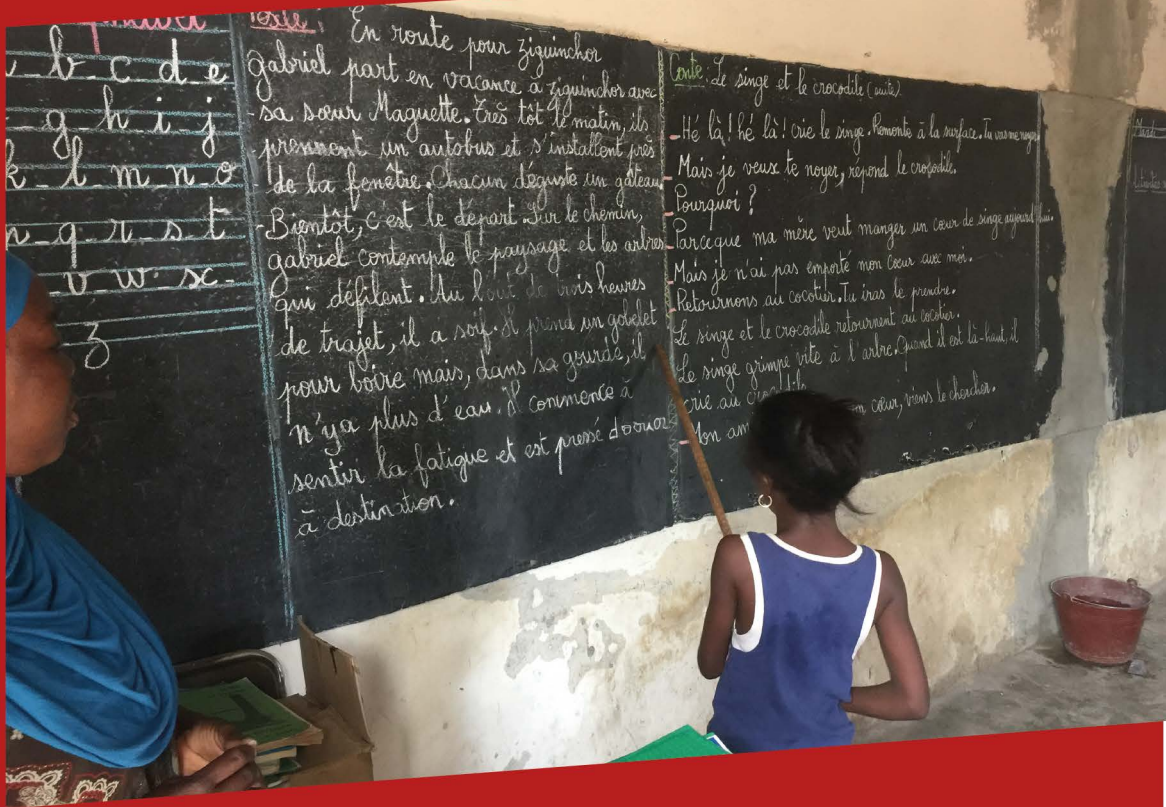 b c d e
g h i j
k l m n o
q r s t
v w x
z
Texte :
En route pour ziguinchor
gabriel part en vacance à ziguinchor avec
sa sœur Maguette. Très tôt le matin, ils
prennent un autobus et s'installent près
de la fenêtre. Chacun déguste un gâteau.
Bientôt, c'est le départ. Sur le chemin,
gabriel contemple le paysage et les arbres
qui défilent. Au bout de trois heures
de trajet, il a soif. Il prend un gobelet
pour boire mais, dans sa gourde, il
n'ya plus d'eau. Il commence à
sentir la fatigue et est pressé d'
à destination.
Conte : Le singe et le crocodile (suite)
- Hé là ! hé là ! crie le singe. Remonte à la surface. Tu vas me noyer
- Mais je veux te noyer, répond le crocodile.
- Pourquoi ?
- Parceque ma mère veut manger un cœur de singe aujourd'hui.
- Mais je n'ai pas emporté mon cœur avec moi.
- Retournons au cocotier. Tu iras le prendre.
Le singe et le crocodile retournent au cocotier.
Le singe grimpe vite à l'arbre. Quand il est là-haut, il
crie au
- Mon cœur, viens le chercher.